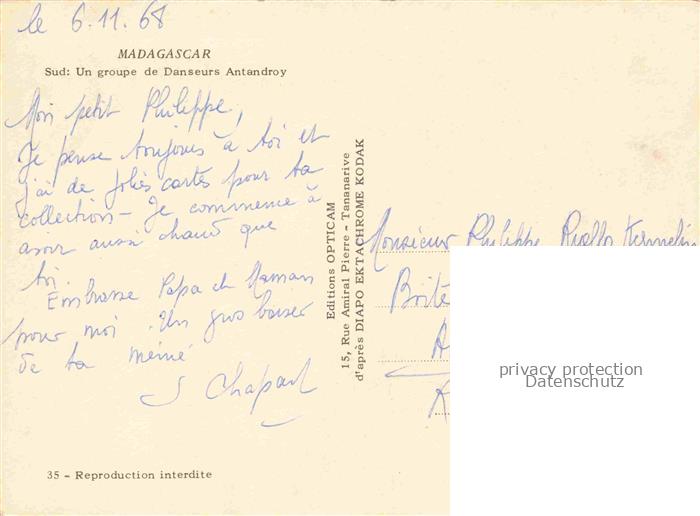 le 6.11.68
MADAGASCAR
Sud: Un groupe de Danseurs Antandroy
Mon petit Philippe,
Je pense toujours à toi et
j'ai de jolies cartes pour ta
collection - Je commence à
avoir aussi chaud que
toi.
Embrasse Papa et Maman
pour moi. Un gros baiser
de ta mémé
S Chapart
35 - Reproduction interdite
Editions OPTICAM
15, Rue Amiral Pierre - Tananarive
d'après DIAPO EKTACHROME KODAK
Monsieur Philippe
Boite
A
R
privacy protection
Datenschutz